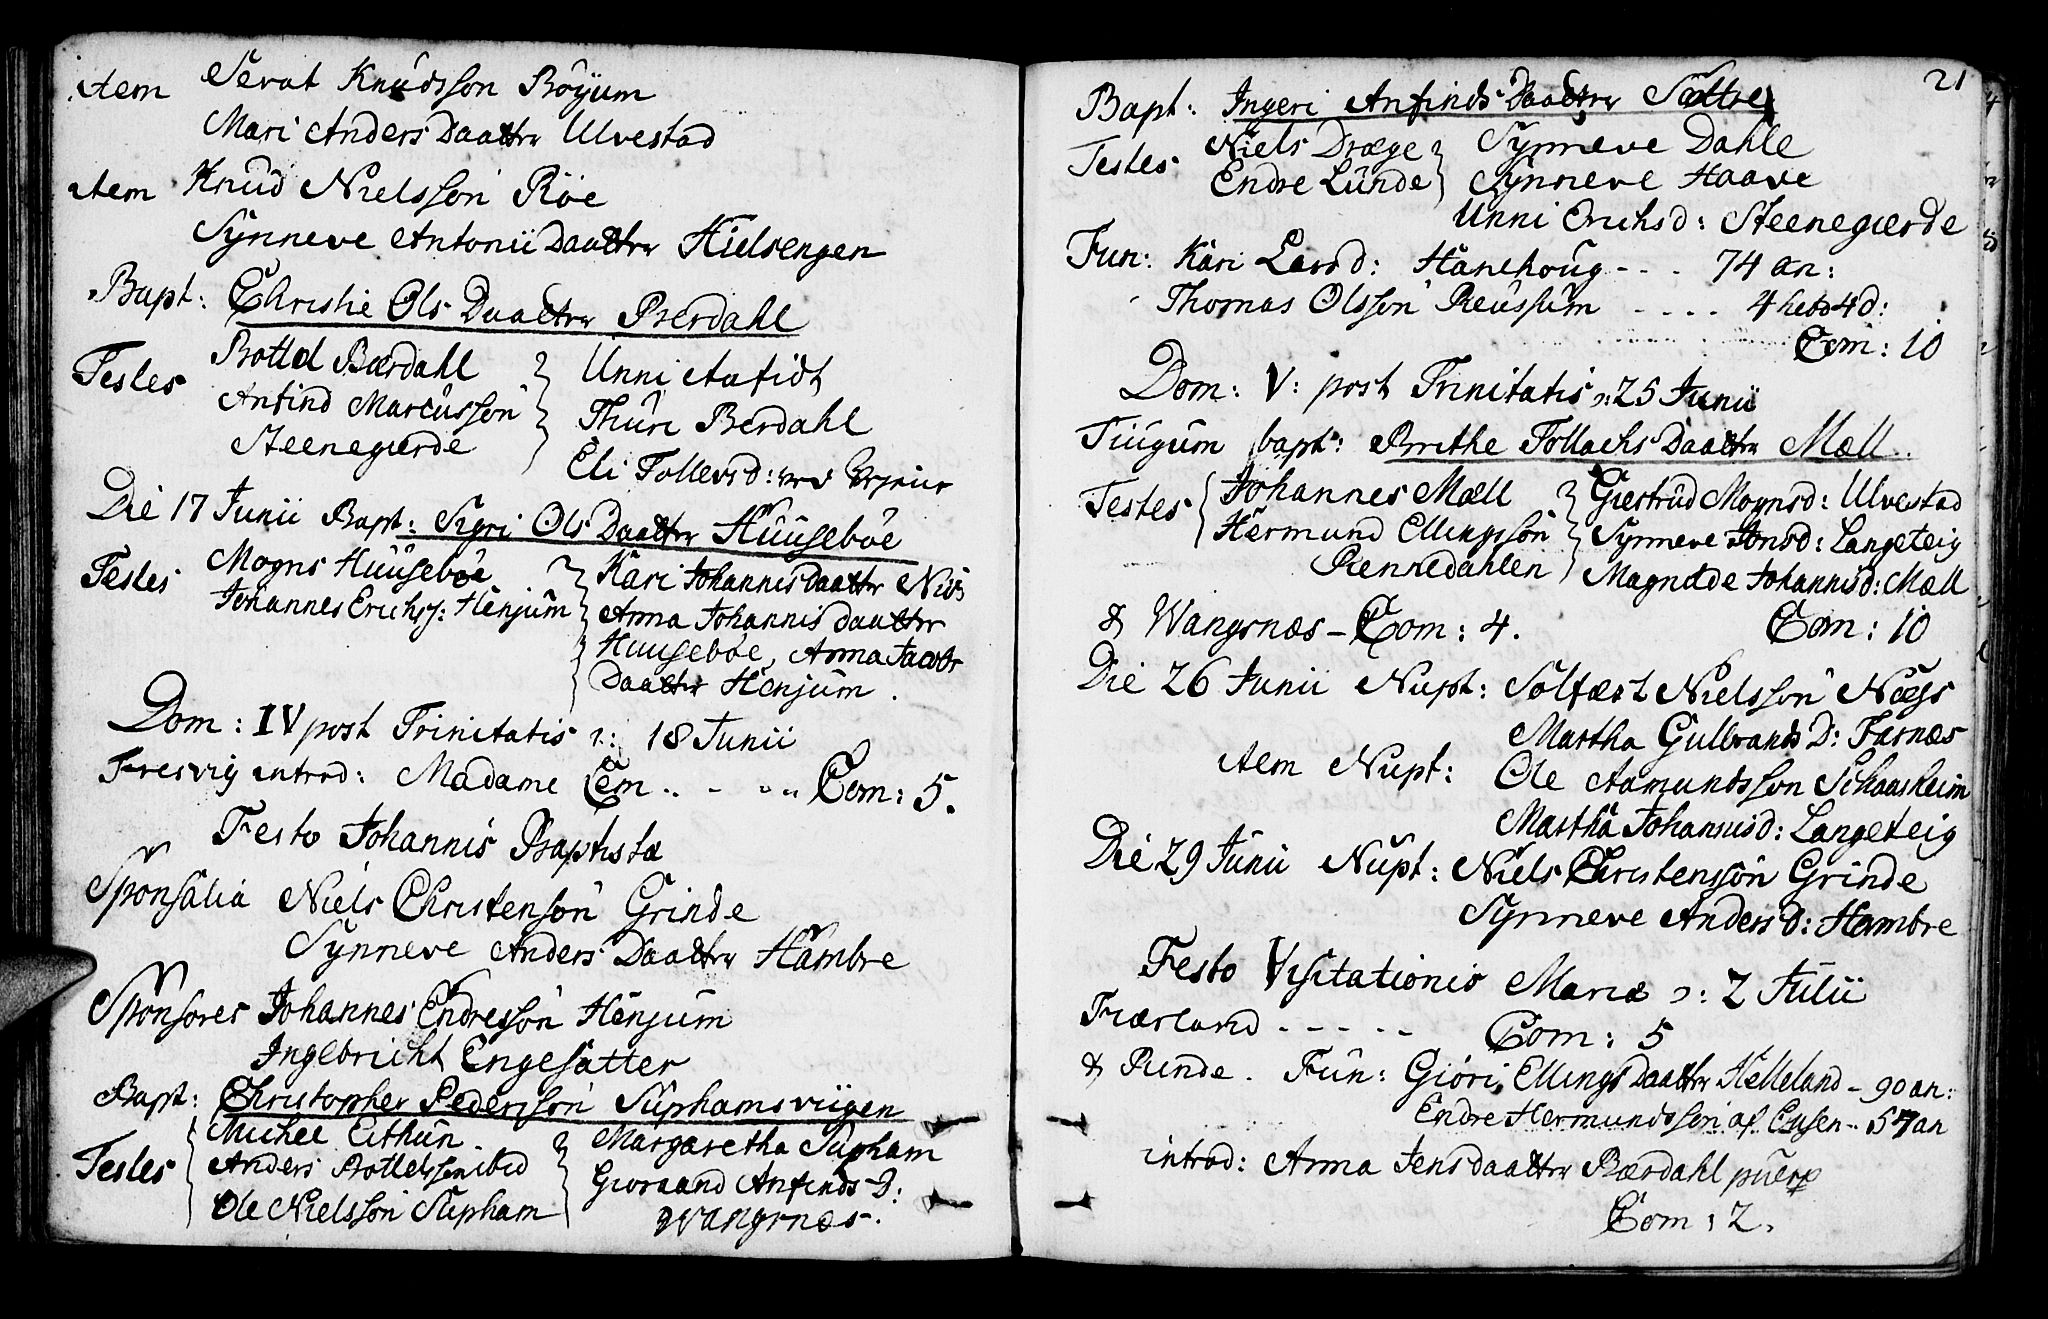 Item Sevat Knudsson Böyum
Mari Anders Daatter Ulvestad
Item Knud Nielsson Röe
Synneve Antonii Daatter Hielsengen
Bapt: Christie Ols Daatter Berdahl
Testes Bottel Bærdahl } Unni Aafidt
Anfind Marcusson } Thuri Berdahl
Steenegierde } Eli Tollevsd:
Die 17 Junii Bapt: Sigri Ols Daatter Huuseböe
Testes Mogns Huuseböe } Kari Johannis Daatter
Johannes Erichs: Henjum } Anna Johannis Daatter
Huuseböe, Anna Jacobs
Daatter Henjum.
Dom: IV post Trinitatis ɔ: 18 Junii
Fresvig introd: Madame Cem .. - .. Com: 5.
Festo Johannis Baptistæ
Sponsalia Niels Christensön Grinde
Synneve Anders Daatter Hambre
Sponsores Johannes Endresson Henjum
Ingebricht Engesætter
Bapt: Christopher Pedersson Suphamsviigen
Testes Michel Eithun } Margaretha Supham
Anders Bottelssön ibid } Gioraand Anfinds D:
Ole Nielssön Supham } Wangsnæs.
21
Bapt: Ingeri Anfinds Daatter Sættre
Testes Niels Dræge } Synneve Dahle
Endre Lunde } Synneve Haave
Unni Erichsd: Steenegierde
Fun: Kari Larsd: Hanehoug - - - 74 an:
Thomas Olsson Reusum - - - - 4 hebd 4 d:
Com: 10
Dom: V: post Trinitatis ɔ: 25 Junii
Tiugum bapt: Brrithe Tollachs Daatter Mæll..
Testes { Johannes Mæll } Giertrud Mognsd: Ulvestad
Hermund Ellingsson } Synneve Jonsd: Langeteig
Rennedahlen } Magnilde Johannisd: Mæll
& Wangsnæs - Com: 4. Com: 10
Die 26 Junii Nupt: Solfæst Nielsson Næss
Martha Gulbrands D: Farnæs
Item Nupt: Ole Aamundsson Schaasheim
Martha Johannisd: Langeteig
Die 29 Junii Nupt: Niels Christenssön Grinde
Synneve Andersd: Hambre
Festo Visitationis Mariæ ɔ: 2 Julii
Fiærland - - - - - Com: 5
& Rinde. Fun: Giöri Ellings Daatter Helleland - 90 an:
Endre Hermundsson af Eusen - 57 an
introd: Anna Jensdaatter Bærdahl puerp
Com: 2.